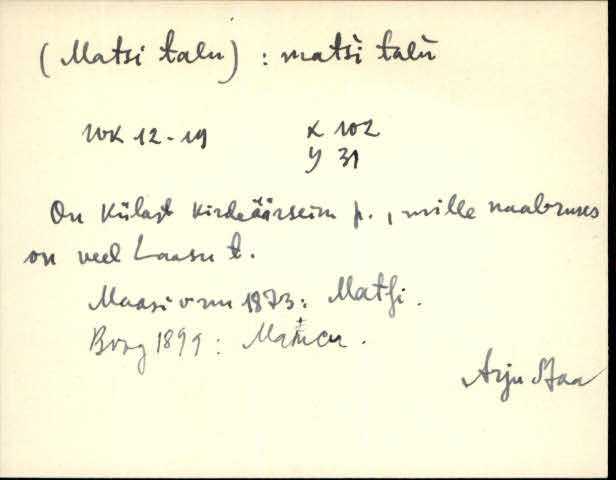 (Matsi talu) : matsì talù
WK 12-19 X 102
Y 31
On külast kirdeäärseim p., mille naabruses
on veel Laasu t.
Maasi vm 1873: Matſi.
Borg 1899: